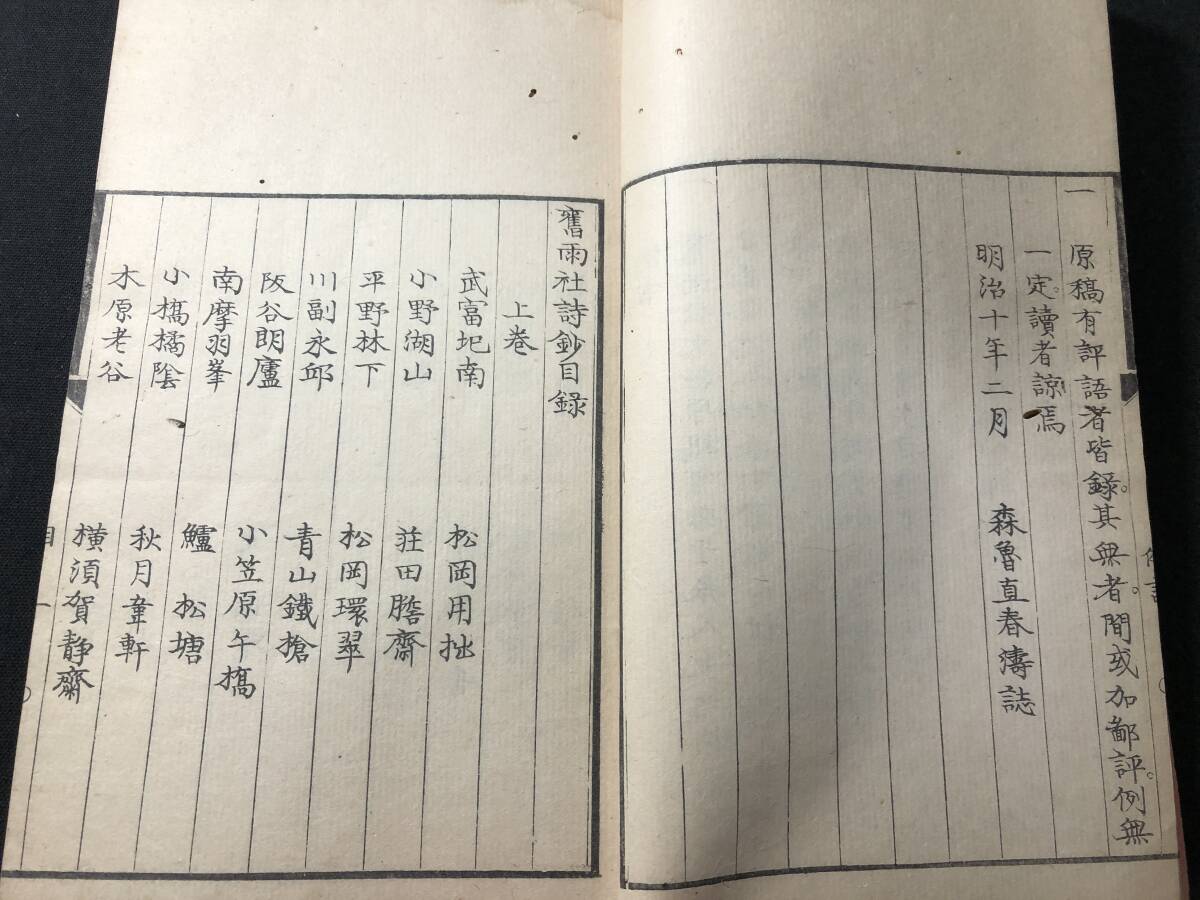 一 原稿有評語者皆錄。其無者。間或加鄙評。例無
一定。讀者諒焉
明治十年二月 森魯直春濤誌
舊雨社詩鈔目錄
上卷
武富圯南 松岡用拙
小野湖山 莊田膽齋
平野林下 松岡環翠
川副永邱 青山鐵槍
阪谷朗廬 小笠原午橋
南摩羽峯 鱸松塘
小橋橘陰 秋月韋軒
木原老谷 横須賀静齋
目 一